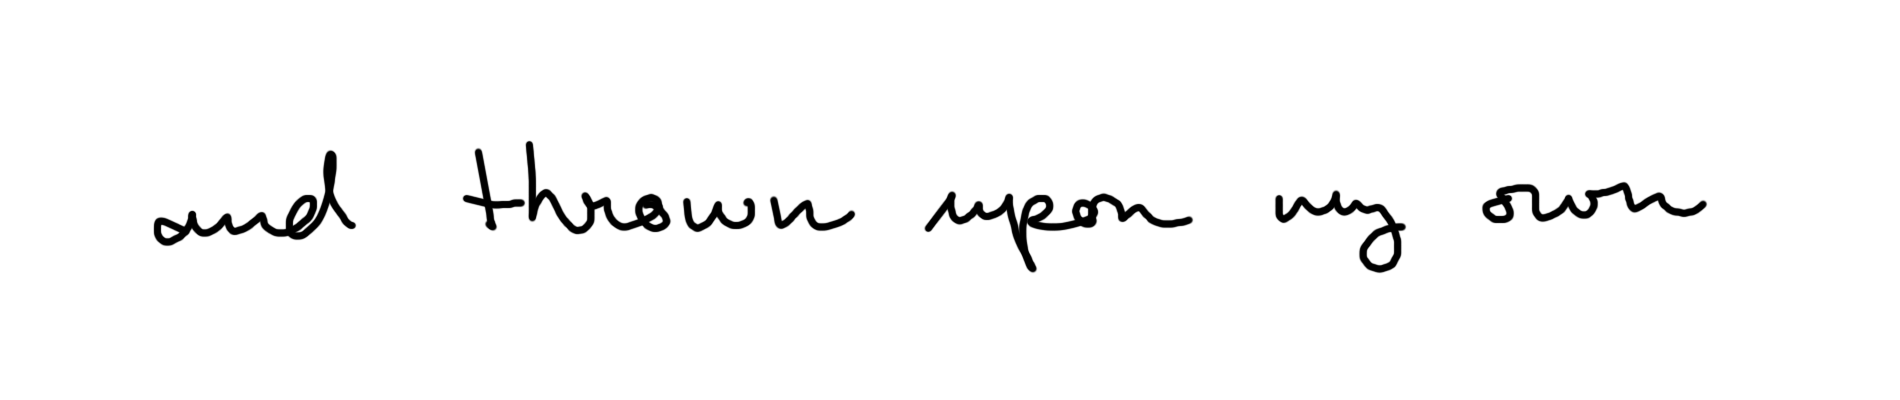 and thrown upon my own